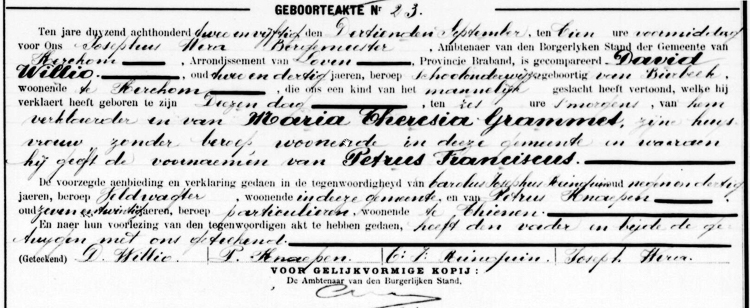 GEBOORTEAKTE Nr 23.
Ten jare duyzend achthonderd twee en vijftig den Dertienden September, ten tien ure voormiddag
voor Ons Josephus Wera Borgemeester, Ambtenaer van den Borgerlyken Stand der Gemeente van
Kerckom, Arrondissement van Loven, Provincie Braband, is gecompareerd David
Willio. , oud twee en dertig jaeren, beroep schoolonderwijzer geboortig van Bierbeek,
woonende te Kerckom, die ons een kind van het mannelijk geslacht heeft vertoond, welke hij
verklaert heeft geboren te zijn Dezen dag, ten zes ure smorgens, van hem
verklaerder en van Maria Theresia Grammet, zijne huis
vrouw zonder beroep woonende in deze gemeente en waeraan
hij geeft de voornaemen van Petrus Franciscus.
De voorzegde aenbieding en verklaring gedaen in de tegenwoordigheyd van Carolus Josephus oud negen en dertig
jaeren, beroep Veldwagter, woonende in deze gemeente, en van Petrus Knaepen
oud zeven en twintig jaeren, beroep particulieren, woonende te Thienen.
En naer hun voorlezing van den tegenwoordigen akt te hebben gedaen, heeft den vader en bijde de ge
tuygen met ons geteekend.
(Geteekend) D. Willio. P. Knaepen. C: J: Joseph Wera.
VOOR GELIJKVORMIGE KOPIJ :
De Ambtenaar van den Burgerlijken Stand,